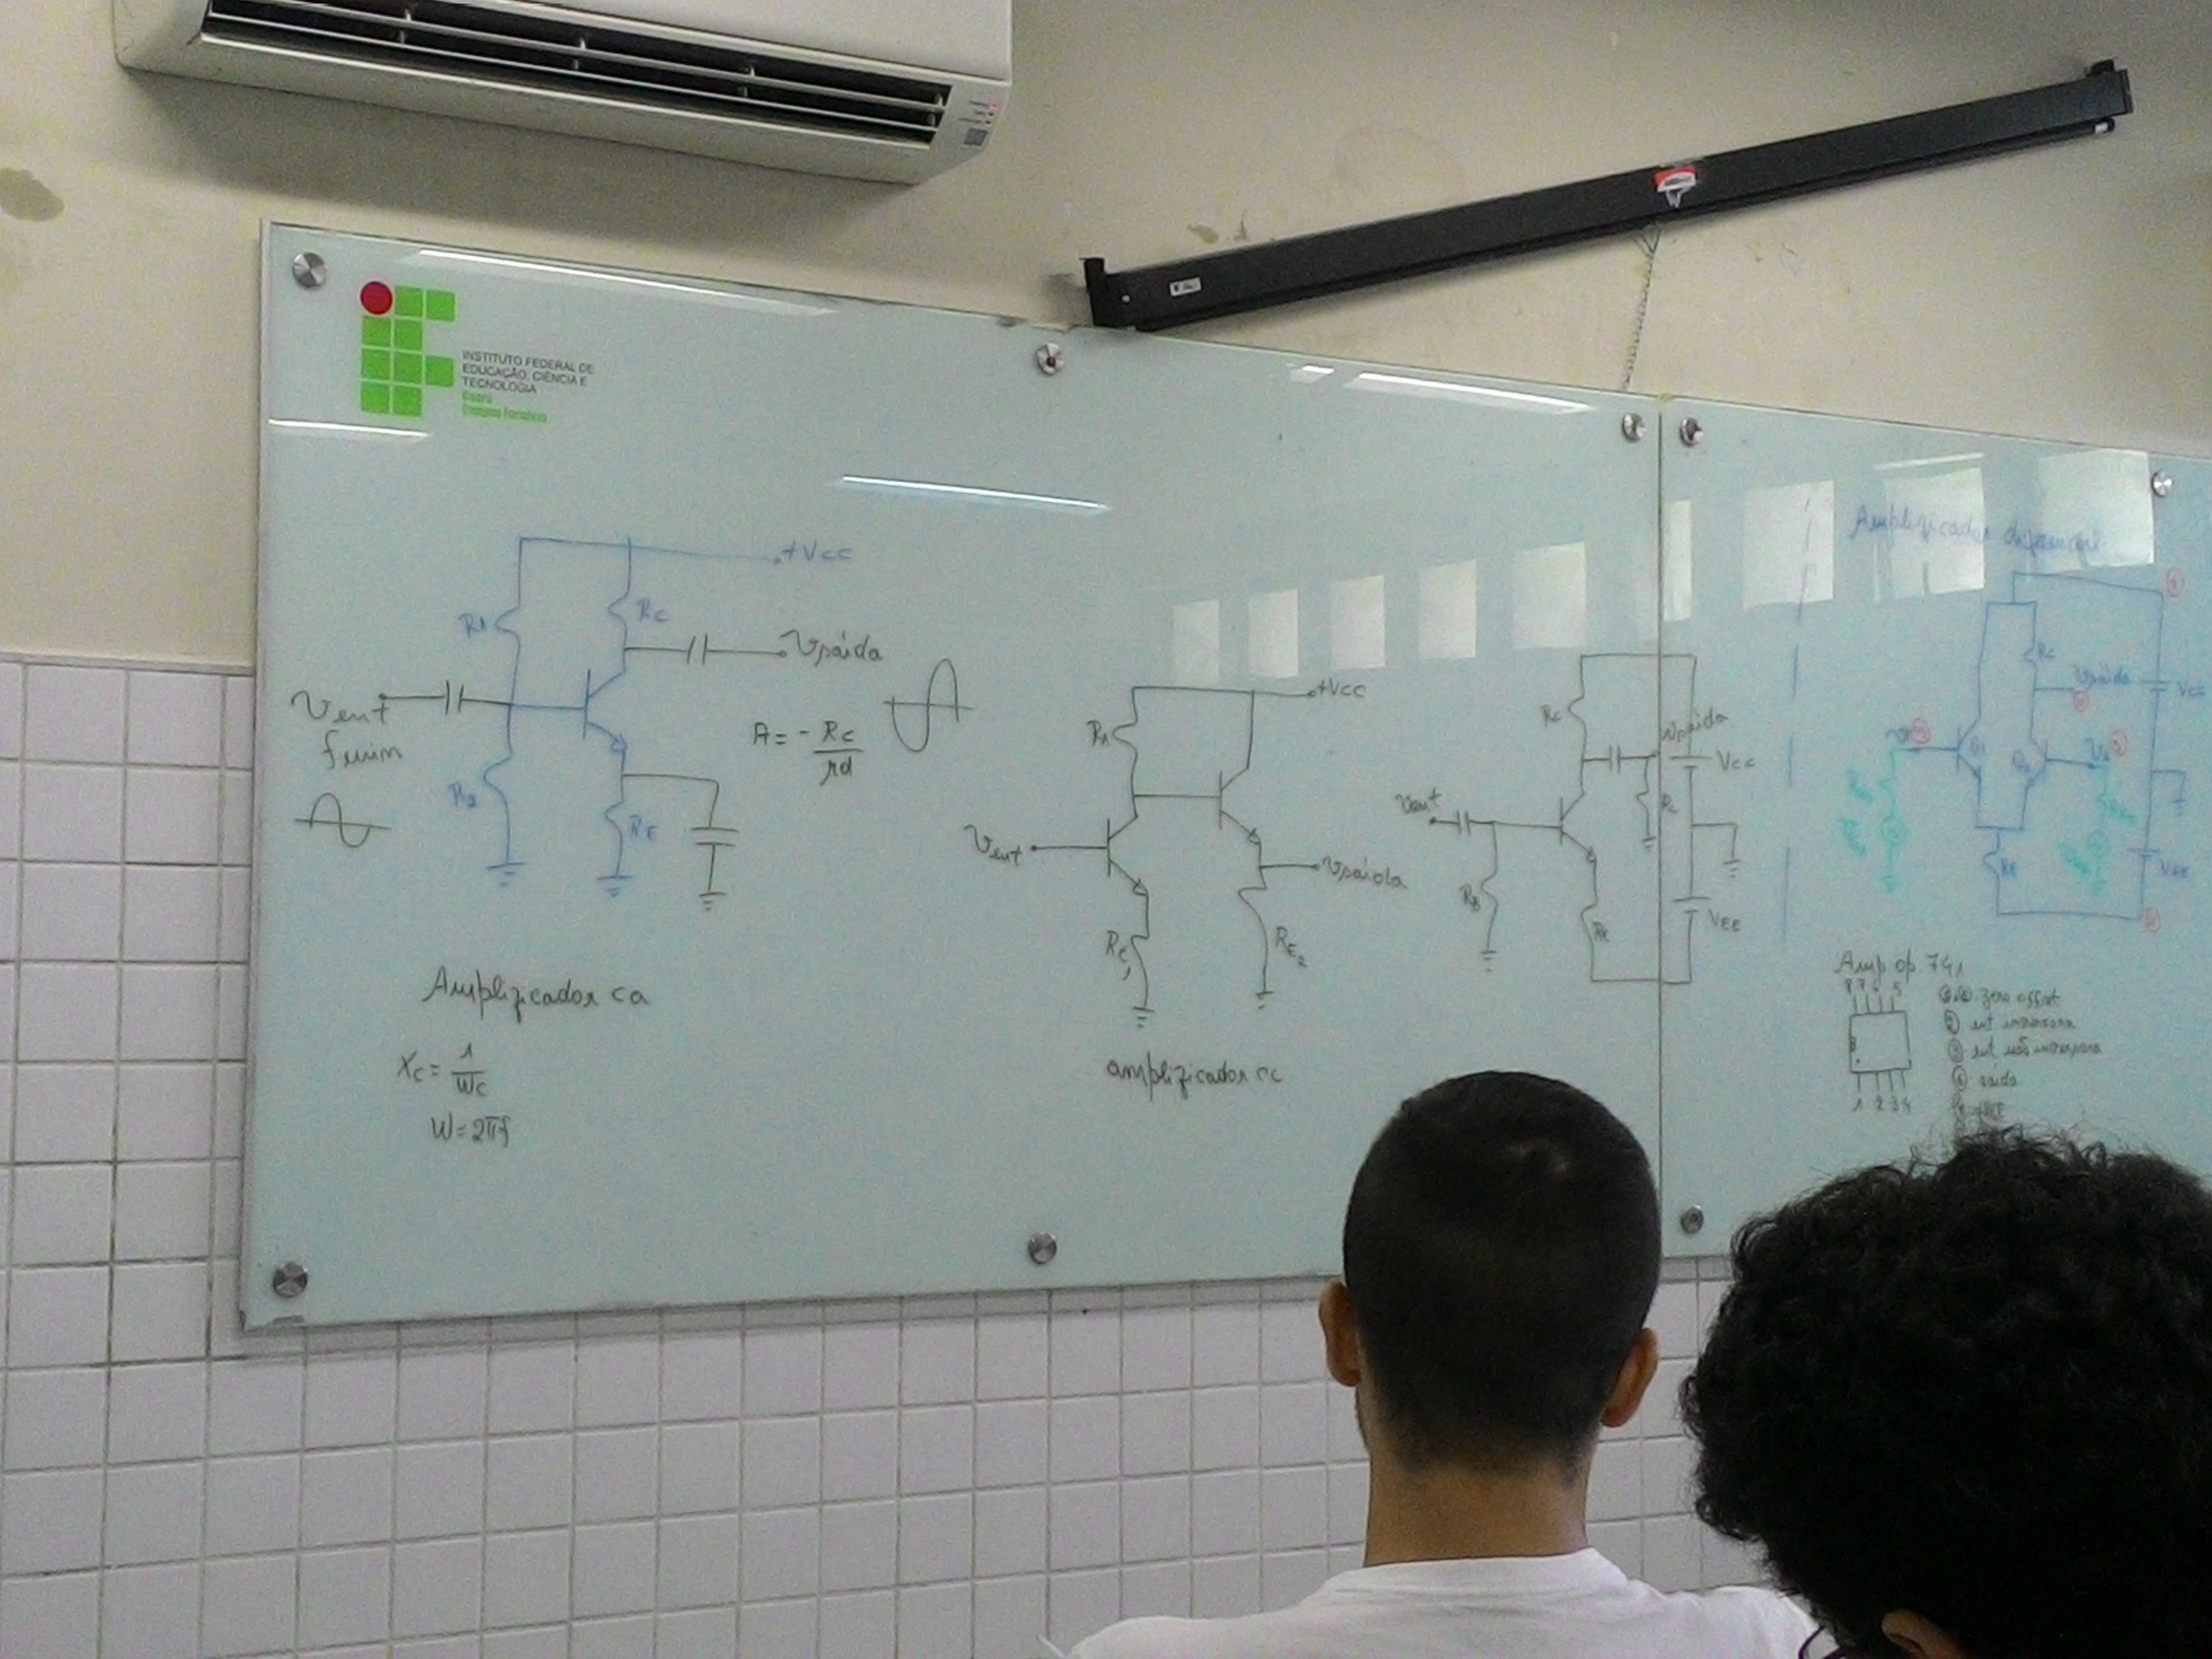 INSTITUTO FEDERAL DE
EDUCAÇÃO, CIÊNCIA E
TECNOLOGIA
Ceará
Campus Fortaleza
+Vcc
R1
Rc
Vsaída
Vent
fmin
R2
RE
A = - Rc / rd
Amplificador ca
Xc = 1 / Wc
W = 2πf
+Vcc
R1
Vent
Vsaída
RE1
RE2
amplificador cc
Rc
Vsaída
Vcc
Vent
RL
RB
RE
VEE
Amplificador diferencial
Rc
Vsaída
Vcc
Q1
Q2
RE
VEE
Amp op 741
8 7 6 5
1 2 3 4
zero offset
② ent inversora
③ ent não inversora
⑥ saída